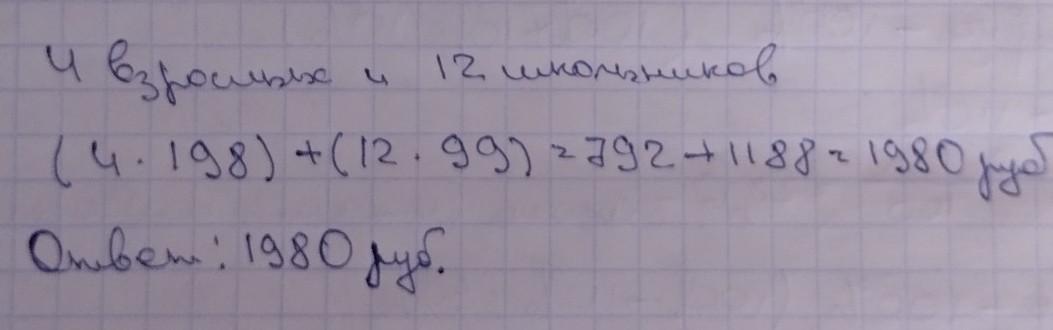 4 взрослых и 12 школьников
(4 · 198) + (12 · 99) = 792 + 1188 = 1980 руб
Ответ: 1980 руб.